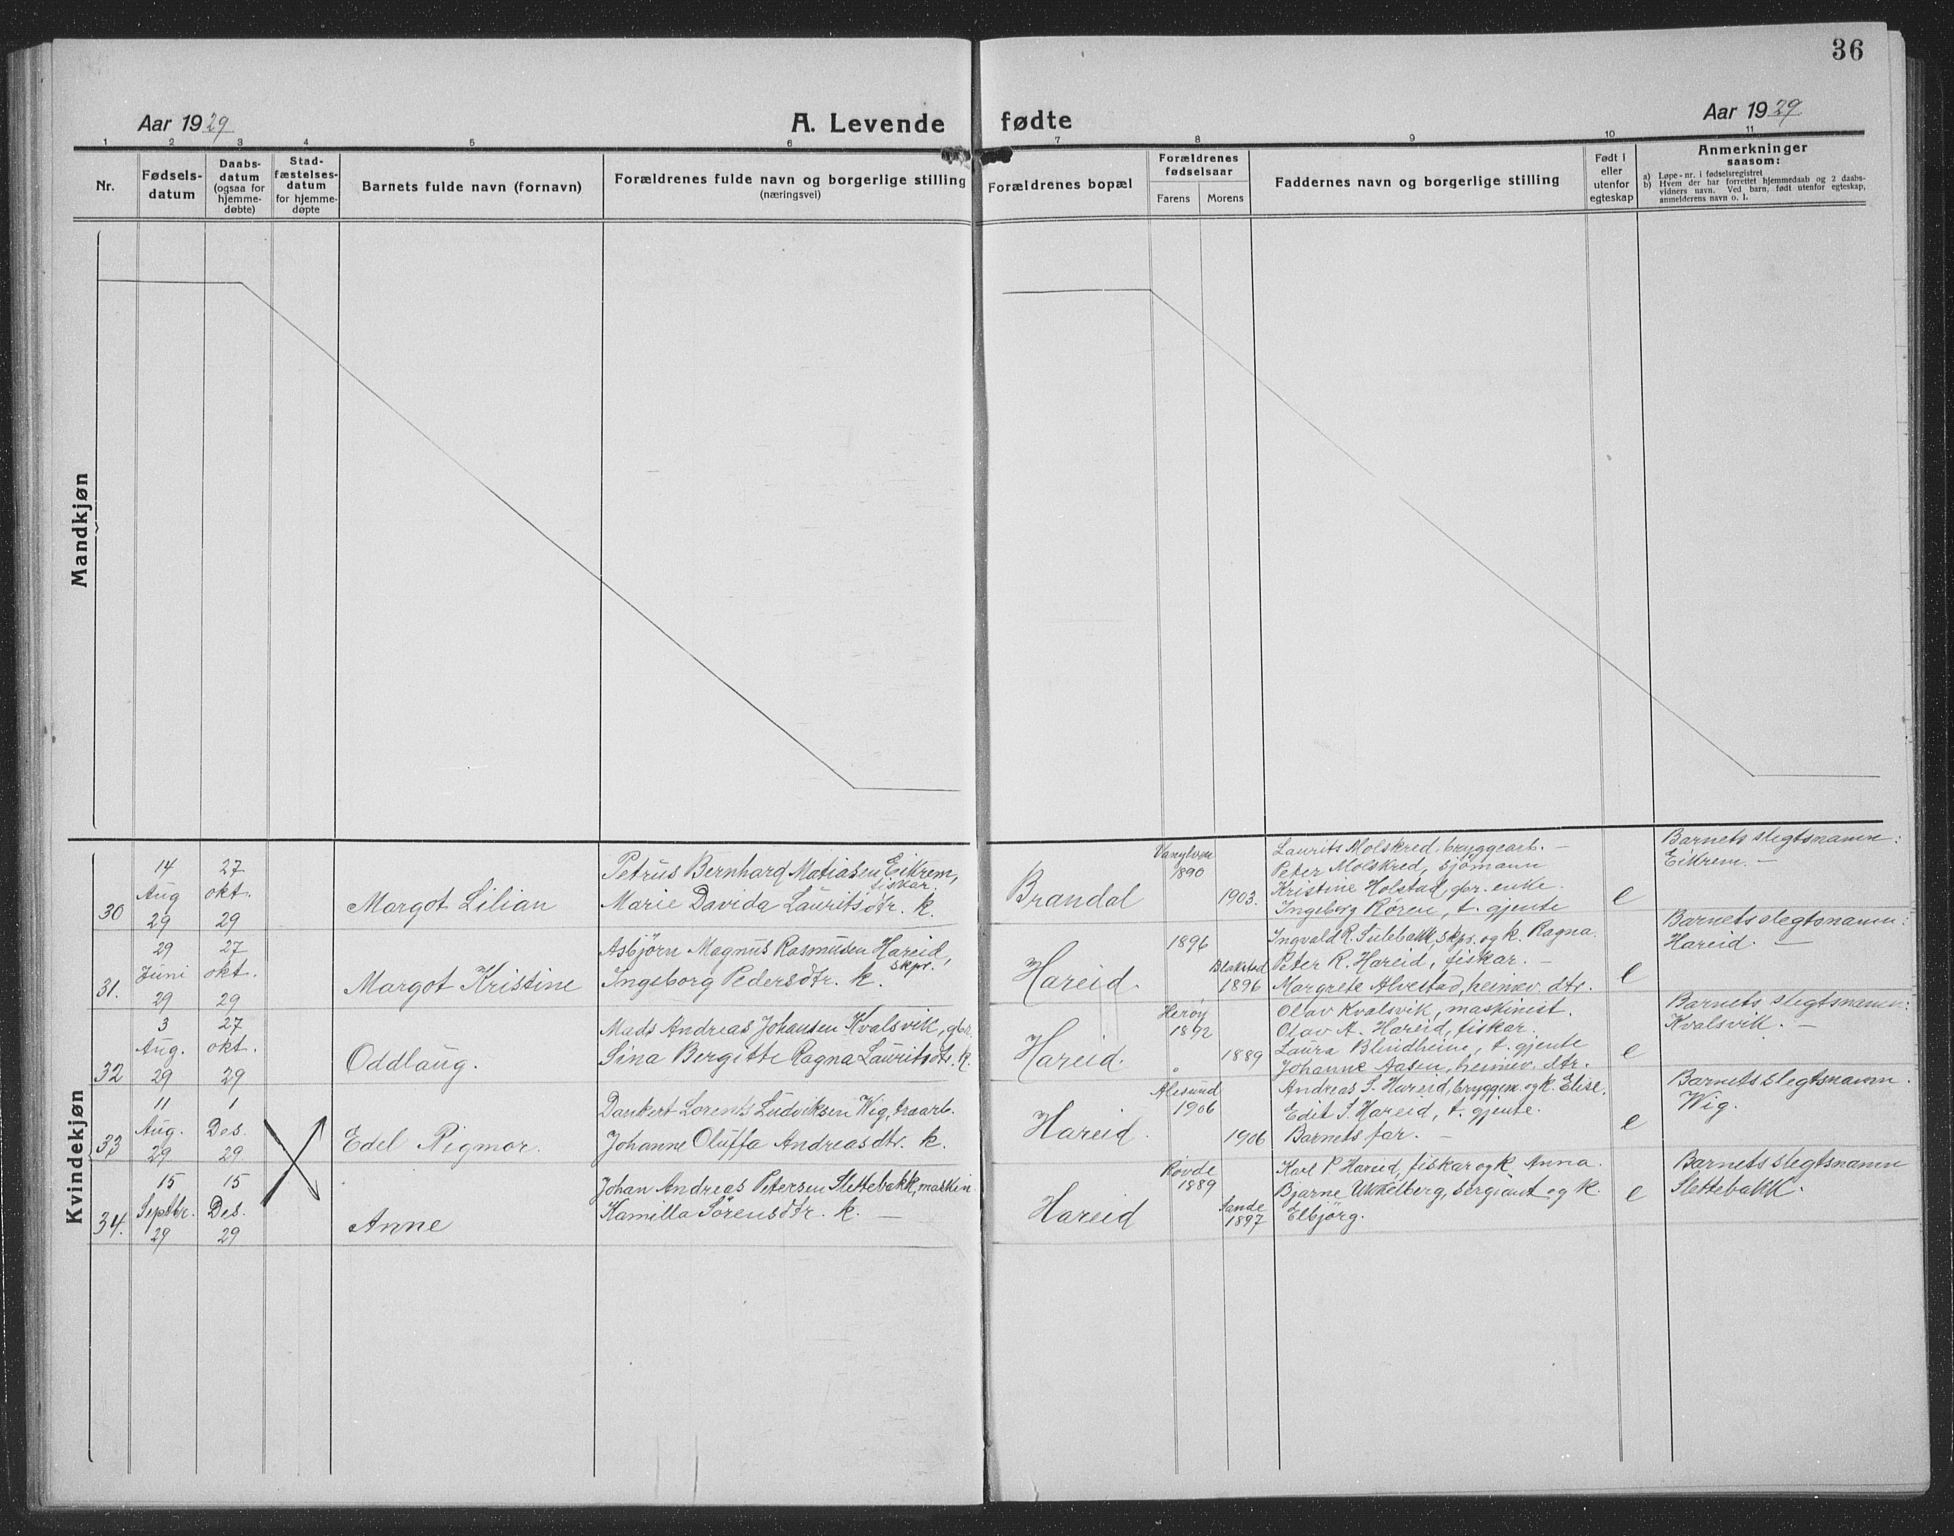 36
Aar 1929
A. Levende fødte
Aar 1929
1 2 3 4 5 6 7 8 9 10 11
Nr.
Fødsels-
datum
Daabs-
datum
(ogsaa for
hjemme-
døbte)
Stad-
fæstelses-
datum
for hjemme-
døpte
Barnets fulde navn (fornavn)
Forældrenes fulde navn og borgerlige stilling
(næringsvei)
Forældrenes bopæl
Forældrenes
fødselsaar
Farens Morens
Faddernes navn og borgerlige stilling
Født i
eller
utenfor
egteskap
Anmerkninger
saasom:
a) Løpe-nr. i fødselsregistret
b) Hvem der har forrettet hjemmedaab og 2 daabs-
vidners navn. Ved barn, født utenfor egteskap,
anmelderens navn o. l.
Mandkjøn
Kvindekjøn
30
14
Aug
29
27
okt.
29
Margot Lilian
Petrus Bernhard Matiasen Eikrem,
fiskar.
Marie Davida Lauritsdtr. k.
Brandal
Vanylven
1890
1903.
Laurits Molskred, bryggearb. —
Peter Molskred, sjömann
Kristine Holstad, gbr. enke.
Ingeborg Rören, t. gjente
e
Barnets slegtsnamn:
Eikrem. —
31.
29
Juni
29
27
okt.
29
Margot Kristine
Asbjörn Magnus Rasmusen Hareid,
skpr.
Ingeborg Pedersdtr. k.
Hareid.
1896
Blakstad
1896
Ingvald R. Sulebakk, skpr. og k. Ragna.
Peter R. Hareid, fiskar. —
Margrete Alvestad, heimev. dtr.
e
Barnets slegtsnamn:
Hareid. —
32
3
Aug.
29
27
okt.
29
Oddlaug.
Mads Andreas Johansen Kvalsvik, gbr.
Sina Bergitte Ragna Lauritsdtr. k.
Hareid.
Heröy
1892
1889
Olav Kvalsvik, maskinist.
Olav A. Hareid, fiskar.
Laura Blindheim, t. gjente
Johanne Aasen, heimev. dtr.
e
Barnets slegtsnamn:
Kvalsvik. —
33
11
Aug.
29
1
Des.
29
Edel Rigmor.
Dankert Lorents Ludviksen Wig, traarb.
Johanne Oluffa Andreasdtr. k.
Hareid.
Alesund
1906
1906
Andreas S. Hareid, bryggem. og k. Elise.
Edit S. Hareid, t. gjente.
Barnets far. —
e
Barnets slegtsnamn.
Wig.
34.
15
Septbr.
29
15
Des.
29
Anne
Johan Andreas Petersen Slettebakk, maskin.
Kamilla Sörensdtr. k. —
Hareid
Rovde
1889
Sande
1897
Karl P. Hareid, fiskar og k. Anna.
Bjarne Ukkelberg, sergiant og k.
Elbjörg.
e
Barnets slegtsnamn
Slettebakk.